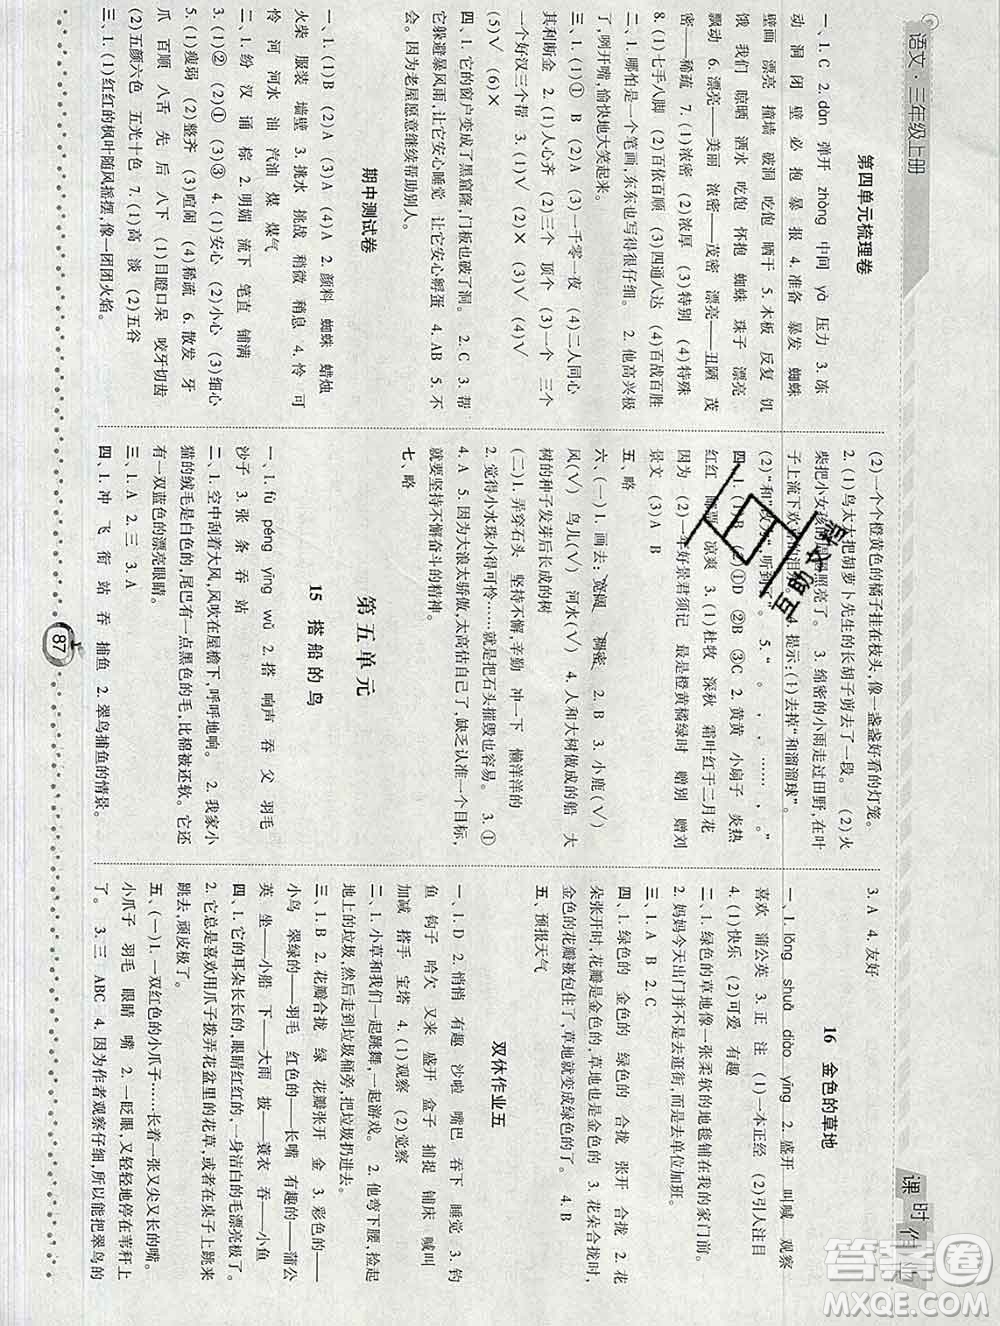 语文·三年级上册
课时作业
第四单元梳理卷
一、1. C 2. dòn 弹开 zhòng 中间 yà 压力 3. 冻
动 洞 闭 壁 必 抱 暴 报 4. 准备 暴发 蜘蛛
壁画 漂亮 撞墙 破洞 吃饱 晒干 5. 木板 反复 饥
饿 我们 晾晒 洒水 吃饱 怀抱 蜘蛛 珠子 漂亮
飘动 6. 漂亮——美丽 浓密——茂密 漂亮——丑陋 茂
密——稀疏 7. (1)浓密 (2)浓厚 (3)特别 (4)特殊
8. (1)七手八脚 (2)百依百顺 (3)四通八达 (4)百战百胜
二、1. 哪怕是一个笔画,东东也写得很仔细。 2. 他高兴极
了,咧开嘴,愉快地大笑起来。
三、1. (1)① B (2)A (3)一千零一夜 (4)二人同心
其利断金 2. (1)人心齐 (2)三个 顶个 (3)一个 三个
一个好汉三个帮 3. (1)√ (2)√ (3)× (4)√
(5)√ (6)×
四、1. 它的窗户变成了黑窟窿,门板也破了洞。 2. C 3. 帮
它躲避暴风雨,让它安心睡觉 让它安心孵蛋 4. AB 5. 不
会。因为老屋愿意继续帮助别人。
期中测试卷
一、1. (1)B (2)A (3)A (4)A 2. 颜料 蜘蛛 蜡烛
火柴 服装 墙壁 3. 挑水 挑战 稍微 稍息 4. 怜 可
怜 河 河水 油 汽油 煤 煤气
二、1. 纷 汉 诵 棕 2. 明媚 流下 笔直 铺满
3. (1)①② (2)①② (3)③ 4. (1)安心 (2)小心 (3)细心
5. (1)瘦弱 (2)整齐 (3)喧闹 (4)稀疏 6. 散发 牙
爪 百 顺 八 舌 先 后 八 下 (1)目瞪口呆 咬牙切齿
(2)五颜六色 五光十色 7. (1)高 淡 (2)五谷
三、1. 红红的枫叶随风摇摆,像一团团火焰。
(2)一个个橙黄色的橘子挂在枝头,像一盏盏好看的灯笼。
2. (1)鸟太太把胡萝卜先生的长胡子剪去了一段。 (2)火
柴把小女孩的周围照亮了。 3. 绵密的小雨走过田野,在叶
四、1. (1)B (2)①D ②B ③C 2. 黄黄 小扇子 炎热
因为 (2)一年好景君须记 最是橙黄橘绿时 赠别 赠刘
景文 (3)A B
五、略
风(√) 鸟儿(√) 河水(√) 4. 人和大树做成的船 大
树的种子发芽后长成的树
(二)1. 弄穿石头 坚持不懈,辛勤 冲一下 懒洋洋的
2. 觉得小水珠小得可怜……就是把石头摧毁也容易。 3. ①
4. A 5. 因为大浪太骄傲,太高估自己了,缺乏认准一个目标,
就要坚持不懈奋斗的精神。
七、略
第五单元
15 搭船的鸟
一、1. fú péng yīng wǔ 2. 搭 响声 吞 父 羽毛
沙子 3. 张 条 吞 站
二、1. 空中刮着大风,风吹在屋檐下,呼呼地响。 2. 我家小
猫的绒毛是白色的,尾巴有一点黑色的毛,比棉被还软。它还
有一双蓝色的漂亮眼睛。
三、1. A 2. A 3. A
四、1. 冲 飞 衔 站 吞 捕鱼 2. 翠鸟捕鱼的情景。
3. A 4. 友好
16 金色的草地
喜欢 蒲公英 3. 正 注 (1)一本正经 (2)引人注目
4. (1)快乐 (2)可爱 有趣
二、1. 绿色的草地像一张柔软的地毯铺在我的家门前。
2. 妈妈今天出门并不是去逛街,而是去单位加班。
三、1. A B 2. C
四、1. 绿色的 金色的 绿色的 合拢 张开 合拢 2. 花
朵张开时,花瓣是金色的,草地也是金色的 3. 花朵合拢时,
金色的花瓣被包住了,草地就变成绿色的了。 4. B
五、预报天气
双休作业五
一、1. D 2. 悄悄 有趣 沙啦 嘴巴 吞下 睡觉 3. 钓
鱼 钩子 哈欠 又来 盛开 盒子 捕捉 铺床 喊叫
加减 搭手 宝塔 4. (1)观察 (2)觉察
二、1. 小草和我们一起跳舞,一起游戏。 2. 他弯下腰,捡起
地上的垃圾,然后走到垃圾桶旁,把垃圾扔进去。
三、1. C 2. 绿 花瓣合拢 绿 花瓣张开 金 3. 彩色的——
小鸟 翠绿的——羽毛 红色的——长嘴 有趣的——蒲公
英 坐——小船 下——大雨 披——蓑衣 吞——小鱼
四、1. 它的耳朵长长的,眼睛红红的,一身洁白的毛漂亮极了。
2. 它总是喜欢用爪子拨弄花盆里的花草,或者在桌子上跳来
跳去,顽皮极了。
五、(一)1. 一双红色的小爪子……长着一张又尖又长的嘴。
小爪子 羽毛 眼睛 嘴 2. 一眨眼,又轻轻地停在苇秆上
了。 3. 三 ABC 4. 因为作者观察仔细,所以能把翠鸟的
87
答案圈
MXQE.COM